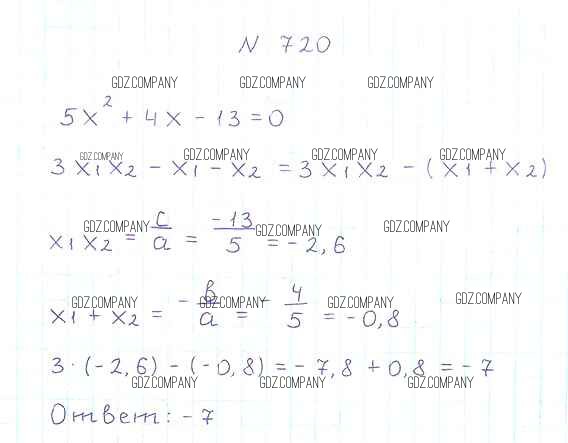 N 720
GDZ.COMPANY GDZ.COMPANY GDZ.COMPANY
5x² + 4x - 13 = 0
GDZ.COMPANY GDZ.COMPANY GDZ.COMPANY GDZ.COMPANY
3 x₁ x₂ - x₁ - x₂ = 3 x₁ x₂ - (x₁ + x₂)
GDZ.COMPANY GDZ.COMPANY GDZ.COMPANY
x₁ x₂ = c/a = -13/5 = -2,6
GDZ.COMPANY GDZ.COMPANY GDZ.COMPANY GDZ.COMPANY
x₁ + x₂ = - b/a = - 4/5 = -0,8
3 · (-2,6) - (-0,8) = -7,8 + 0,8 = -7
GDZ.COMPANY GDZ.COMPANY GDZ.COMPANY
Ответ: -7